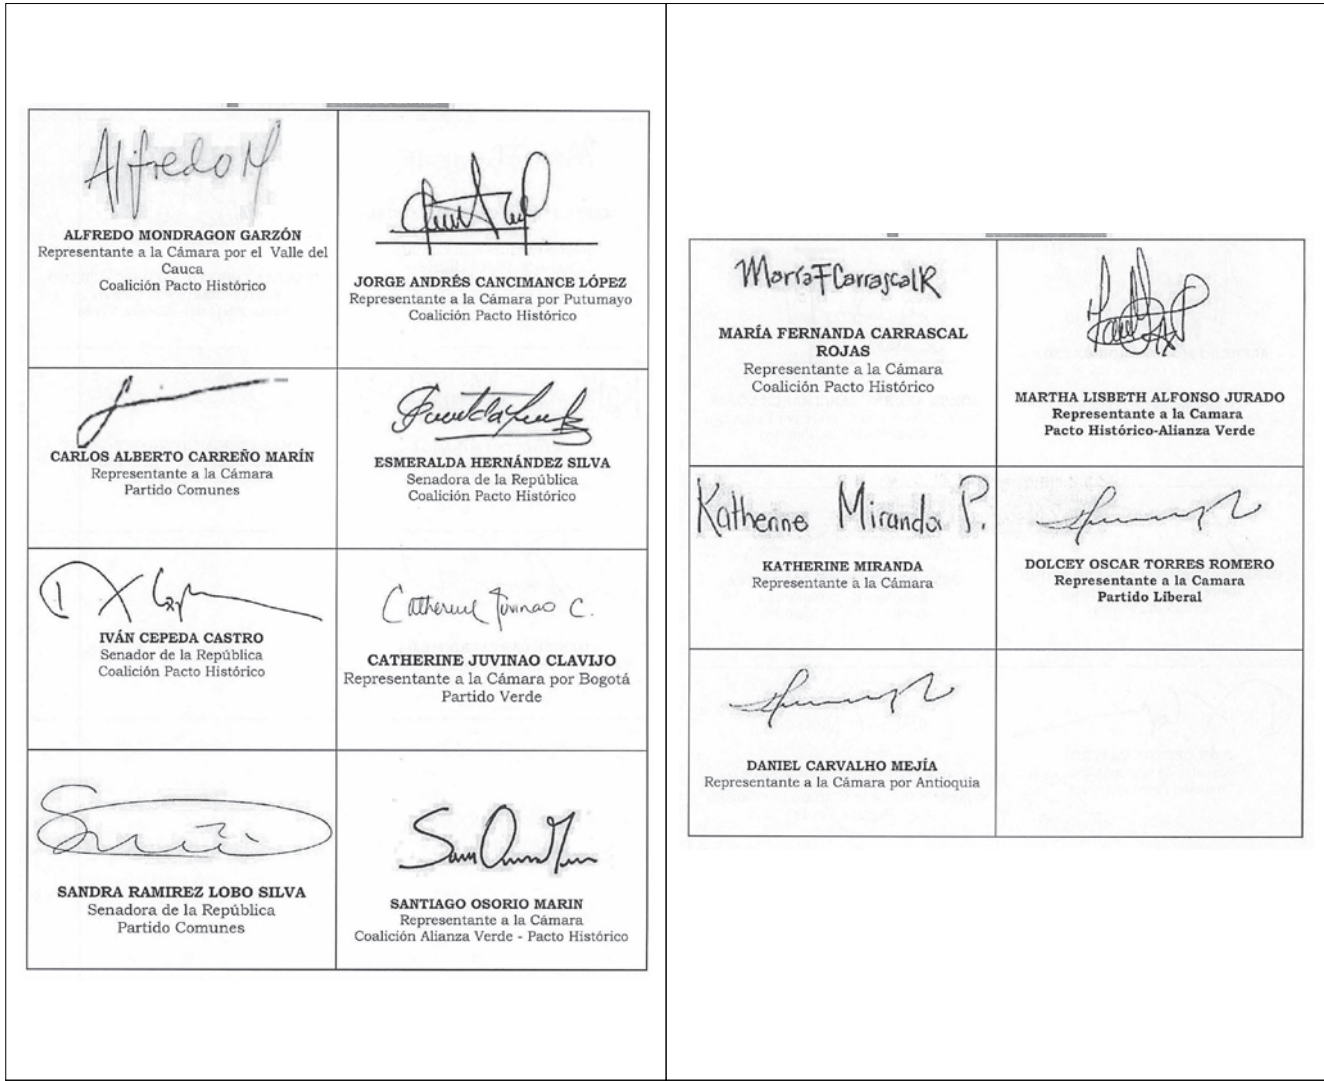 Alfredo M
ALFREDO MONDRAGON GARZÓN
Representante a la Cámara por el Valle del
Cauca
Coalición Pacto Histórico
JORGE ANDRÉS CANCIMANCE LÓPEZ
Representante a la Cámara por Putumayo
Coalición Pacto Histórico
CARLOS ALBERTO CARREÑO MARÍN
Representante a la Cámara
Partido Comunes
ESMERALDA HERNÁNDEZ SILVA
Senadora de la República
Coalición Pacto Histórico
IVÁN CEPEDA CASTRO
Senador de la República
Coalición Pacto Histórico
Catherine Juvinao C.
CATHERINE JUVINAO CLAVIJO
Representante a la Cámara por Bogotá
Partido Verde
SANDRA RAMIREZ LOBO SILVA
Senadora de la República
Partido Comunes
SANTIAGO OSORIO MARIN
Representante a la Cámara
Coalición Alianza Verde - Pacto Histórico
MaríaFCarrascalR
MARÍA FERNANDA CARRASCAL
ROJAS
Representante a la Cámara
Coalición Pacto Histórico
MARTHA LISBETH ALFONSO JURADO
Representante a la Camara
Pacto Histórico-Alianza Verde
Katherine Miranda P.
KATHERINE MIRANDA
Representante a la Cámara
DOLCEY OSCAR TORRES ROMERO
Representante a la Camara
Partido Liberal
DANIEL CARVALHO MEJÍA
Representante a la Cámara por Antioquia